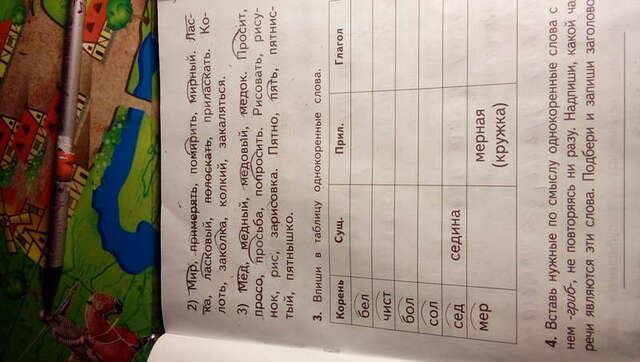 2) Мир, примерять, помирить, мирный. Лас-
ка, ласковый, полоскать, приласкать. Ко-
лоть, заколка, колкий, закаляться.
3) Мёд, медный, медовый, медок. Просит,
просо, просьба, попросить. Рисовать, рису-
нок, рис, зарисовка. Пятно, пять, пятнис-
тый, пятнышко.
3. Впиши в таблицу однокоренные слова.
Корень Сущ. Прил. Глагол
бел
чист
бол
сол
сед седина
мер мерная
(кружка)
4. Вставь нужные по смыслу однокоренные слова с
нем -гриб-, не повторяясь ни разу. Надпиши, какой ча
речи являются эти слова. Подбери и запиши заголово